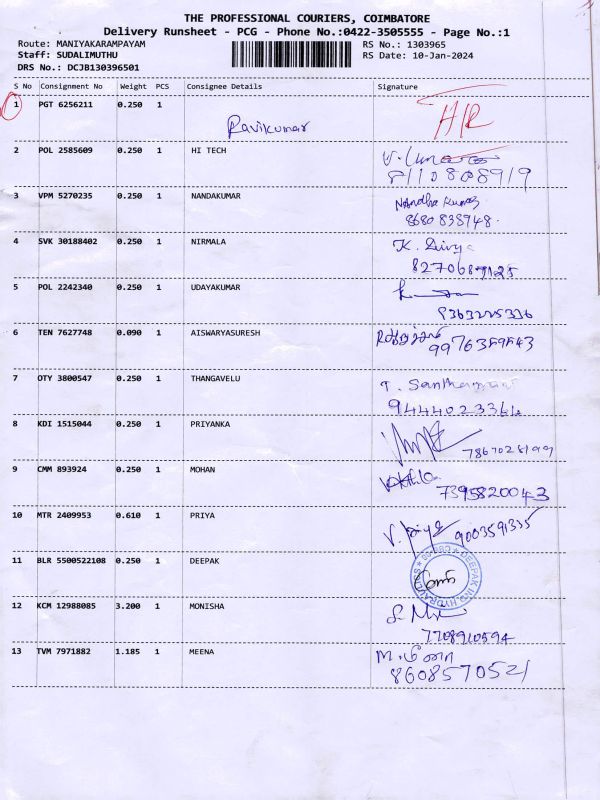 THE PROFESSIONAL COURIERS, COIMBATORE
Delivery Runsheet - PCG - Phone No.:0422-3505555 - Page No.:1
Route: MANIYAKARAMPAYAM RS No.: 1303965
Staff: SUDALIMUTHU RS Date: 10-Jan-2024
DRS No.: DCJB130396501
S No Consignment No Weight PCS Consignee Details Signature
1 PGT 6256211 0.250 1
Ravikumar
2 POL 2585609 0.250 1 HI TECH
8110808919
3 VPM 5270235 0.250 1 NANDAKUMAR
8680838948.
4 SVK 30188402 0.250 1 NIRMALA K. Divya
5 POL 2242340 0.250 1 UDAYAKUMAR
6 TEN 7627748 0.090 1 AISWARYASURESH
7 OTY 3800547 0.250 1 THANGAVELU
9444023364
8 KDI 1515044 0.250 1 PRIYANKA
7867028199
9 CMM 893924 0.250 1 MOHAN
7395820043
10 MTR 2409953 0.610 1 PRIYA
9003591335
11 BLR 5500522108 0.250 1 DEEPAK
12 KCM 12988085 3.200 1 MONISHA
7708910594
13 TVM 7971882 1.185 1 MEENA M. மீனா
8608570521